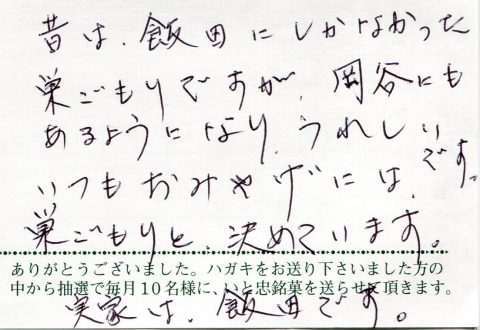 昔は、飯田にしかなかった
巣ごもりですが、岡谷にも
あるようになり、うれしい
です。
いつもおみやげには、
巣ごもりと、決めています。
ありがとうございました。ハガキをお送り下さいました方の
中から抽選で毎月10名様に、いと忠銘菓を送らせて頂きます。
実家は、飯田です。